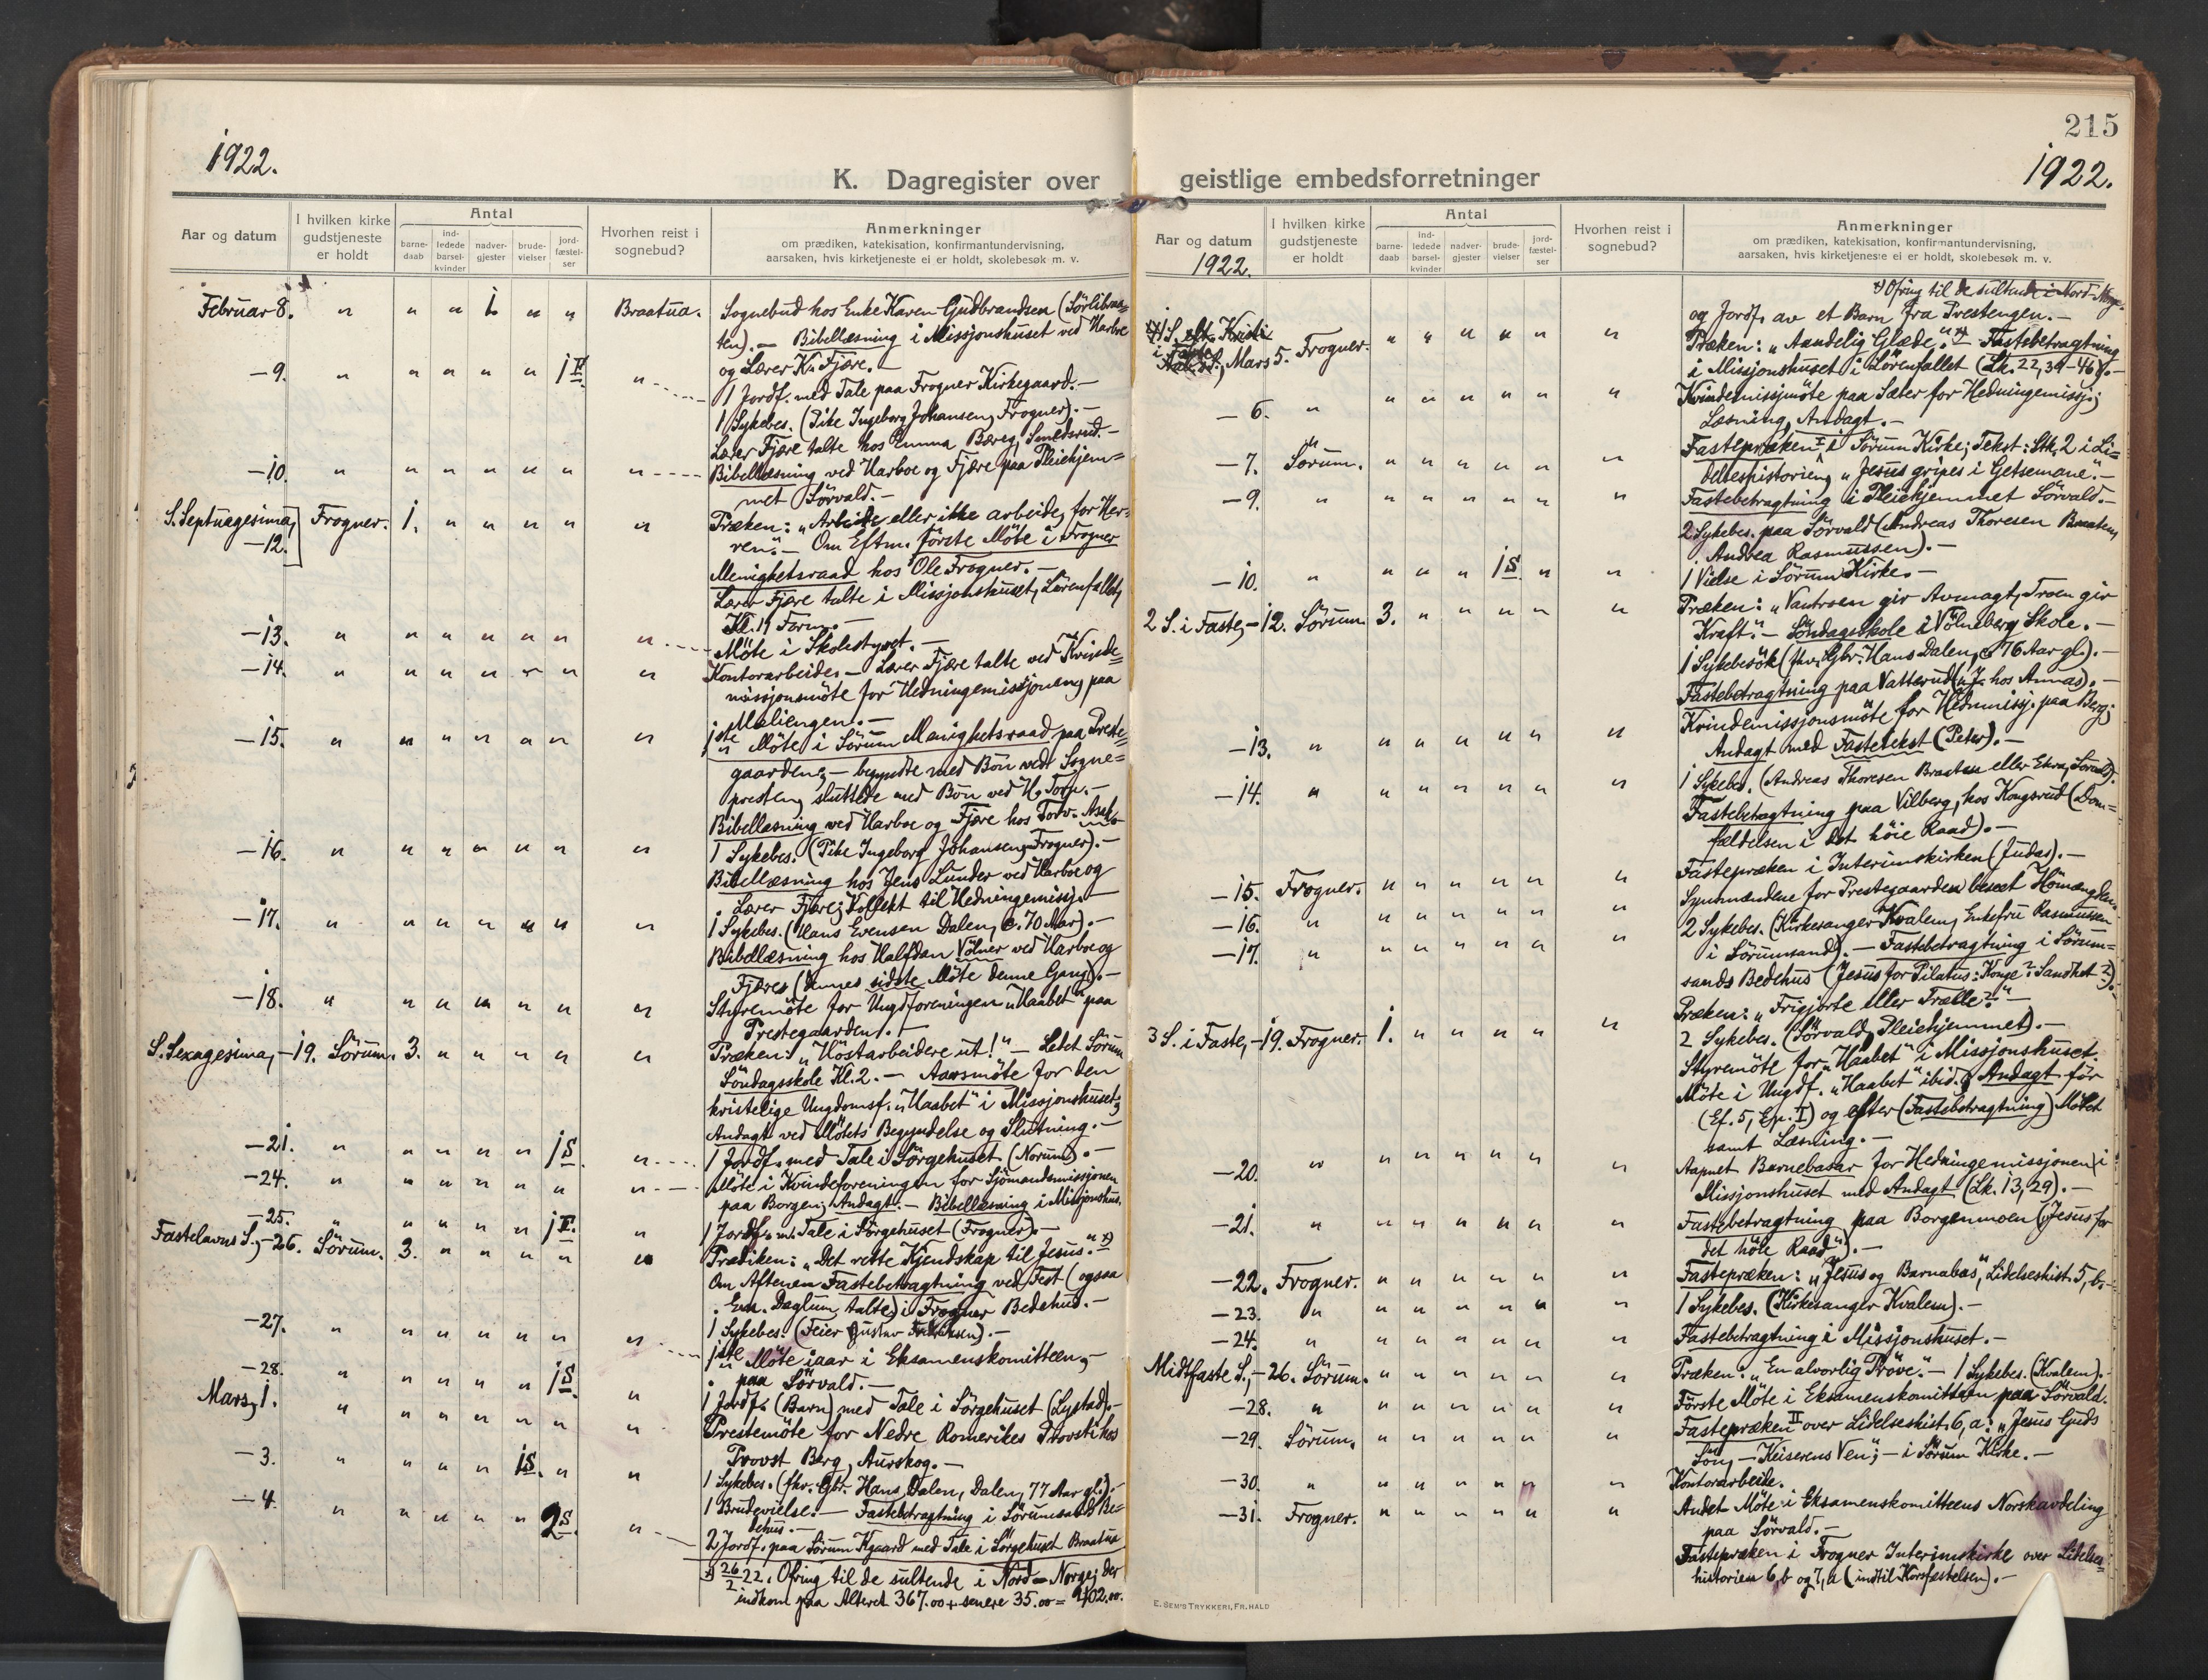 1922.
K. Dagregister over
Aar og datum
I hvilken kirke gudstjeneste er holdt
Antal
barne-daab
ind-ledede barsel-kvinder
nadver-gjester
brude-vielser
jord-fæstel-ser
Hvorhen reist i sognebud?
Anmerkninger
om prædiken, katekisation, konfirmantundervisning,
aarsaken, hvis kirketjeneste ei er holdt, skolebesøk m. v.
Februar 8. " " " 1. " " Braatua. Sognebud hos Enke Karen Gudbrandsen (Sörlibraa=
ten). — Bibellæsning i Missjonshuset ved Harboe
og Lærer K. Fjære. —
— 9. " " " " " 1 F. " 1 Jordf. med Tale paa Frogner Kirkegaard. —
1 Sykebes. (Pike Ingeborg Johansen, Frogner). —
Lærer Fjære talte hos Emma Bæreg, Smedsrud. —
— 10. " " " " " " " Bibellæsning ved Harboe og Fjære paa Pleiehjem=
met Sörvald. —
S. Septuagesima, Frogner. 1. " " " " " Præken: "Arbeide eller ikke arbeide, for Her=
— 12. ren." — Om Eftm. förste Möte i Frogner
Menighetsraad hos Ole Frogner. —
Lærer Fjære talte i Missjonshuset, Lörenfallet,
Kl. 11 Form. —
— 13. " " " " " " " Möte i Skolestyret. —
— 14. " " " " " " " Kontorarbeide. — Lærer Fjære talte ved Kvinde=
missjonsmöte for Hedningemissjonen, paa
Maliengen. —
— 15. " " " " " " " 1ste Möte i Sörum Menighetsraad paa Preste=
gaarden, — begyndte med Bön ved Sogne=
presten, sluttede med Bön ved H. Torp. —
Bibellæsning ved Harboe og Fjære hos Torv. Asak.
— 16. " " " " " " " 1 Sykebes. (Pike Ingeborg Johansen, Frogner). —
Bibellæsning hos Jens Lunder ved Harboe og
Lærer Fjære; Kollekt til Hedningemissj. —
— 17. " " " " " " " 1 Sykebes. (Hans Evensen Dalen, c. 70 Aar). —
Bibellæsning hos Halfdan Völner ved Harboe og
Fjæres (Dennes sidste Möte denne Gang). —
— 18. " " " " " " " Styremöte for Ungdforeningen "Haabet" paa
Prestegaarden. —
S. Sexagesima, — 19. Sörum. 3. " " " " " Præken: "Höstarbeidere ut!" — Ledet Sörum
Söndagsskole Kl. 2. — Aarsmöte for den
kristelige Ungdomsf. "Haabet" i Missjonshuset;
Andagt ved Mötets Begyndelse og Slutning. —
— 21. " " " " " 1 S. " 1 Jordf. med Tale i Sörgehuset (Norum). —
— 24. " " " " " " " Möte i Kvindeforeningen for Sjömandsmissjonen
paa Borgen; Andagt. — Bibellæsning i Missjonshus.
— 25. " " " " " 1 F. " 1 Jordf. m. Tale i Sörgehuset (Frogner). —
Fastelavns S., — 26. Sörum. 3. " " " " " Prædiken: "Det rette Kjendskap til Jesus." x)
Om Aftenen Fastebetragtning ved Fest (ogsaa
Em. Daglum talte) i Frogner Bedehus. —
— 27. " " " " " " " 1 Sykebes. (Feier Gustav Fredriksen). —
1ste Möte i aar i Eksamenskomitteen, —
paa Sörvald. —
— 28. " " " " " 1 S. " 1 Jordf. (Barn) med Tale i Sörgehuset (Lystad). —
Mars, 1. " " " " " " " Prestemöte for Nedre Romerikes Provsti hos
Provst Berg, Aurskog. —
— 3. " " " " 1 S. " " 1 Sykebes. (fhv. Gbr. Hans Dalen, Dalen, 77 Aar gl.). —
1 Brudevielse. — Fastebetragtning i Sörumsands Be=
dehus. —
— 4. " " " " " 2 S. " 2 Jordf. paa Sörum Kgaard med Tale i Sörgehuset Braatua
x) 26/2 22. Ofring til de sultende i Nord-Norge; der
indkom paa Alteret 367.00 + senere 35.00 = 402.00.
215
1922.
geistlige embedsforretninger
Aar og datum
1922.
I hvilken kirke gudstjeneste er holdt
Antal
barne-daab
ind-ledede barsel-kvinder
nadver-gjester
brude-vielser
jord-fæstel-ser
Hvorhen reist i sognebud?
Anmerkninger
om prædiken, katekisation, konfirmantundervisning,
aarsaken, hvis kirketjeneste ei er holdt, skolebesøk m. v.
x) Ofring til de sultende i Nord-Norge.
og Jordf. av et Barn fra Prestengen. —
1 S. i Faste, Mars 5. Frogner. " " " " " " Præken: "Aandelig Glæde." x) — Fastebetragtning
i Missjonshuset i Lörenfallet (Lk. 22, 39-46). —
— 6. " " " " " " " Kvindemissjmöte paa Sæter for Hedningemissj.;
Læsning, Andagt. —
— 7. Sörum. " " " " " " Fastepræken I i Sörum Kirke; Tekst: Stk. 2 i Li=
delseshistorien, "Jesus gripes i Getsemane." —
— 9. " " " " " " " Fastebetragtning i Pleiehjemmet Sörvald. —
2 Sykebes. paa Sörvald (Andreas Thoresen Braaten,
Andrea Rasmussen). —
— 10. " " " " 1 S. " " 1 Vielse i Sörum Kirke. —
2 S. i Faste, — 12. Sörum. 3. " " " " " Præken: "Vantroen gir Avmagt, Troen gir
Kraft." — Söndagsskole i Völneberg Skole. —
1 Sykebesök (fhv. Gbr. Hans Dalen, 76 Aar gl.). —
Fastebetragtning paa Vatterud ( hos Annas). —
— 13. " " " " " " " Kvindemissjonsmöte for Hedmmissj. paa Berg;
Andagt med Fastetekst (Peter). —
— 14. " " " " " " " 1 Sykebes. (Andreas Thoresen Braaten eller Ekra, Sörvald).
Fastebetragtning paa Vilberg, hos Kongsrud (Dom=
fældelsen i det höie Raad). —
— 15. Frogner. " " " " " " Fastepræken i Interimskirken (Judas). —
— 16. " " " " " " " Synsmændene for Prestegaarden beseet Hömængden.
— 17. " " " " " " " 2 Sykebes. (Kirkesanger Kvalem, Enkefru Rasmussen
i Sörumsand). — Fastebetragtning i Sörum=
sands Bedehus (Jesus for Pilatus: Konge? Sandhet?). —
3 S. i Faste, — 19. Frogner. 1. " " " " " Præken: "Frigjorte eller Trælle?" —
2 Sykebes. (Sörvald, Pleiehjemmet). —
Styremöte for "Haabet" i Missjonshuset.
Möte i Ungdf. "Haabet" ibid.; Andagt för
(Ef. 5, Ep. I) og efter (Fastebetragtning) Mötet
samt Læsning. —
— 20. " " " " " " " Aapnet Barnebasar for Hedningemissjonen i
Missjonshuset med Andagt (Lk. 13, 29). —
— 21. " " " " " " " Fastebetragtning paa Borgenmoen ("Jesus for
det höie Raad"). —
— 22. Frogner. " " " " " " Fastepræken: "Jesus og Barnabas", Lidelseshist. 5, b. —
— 23. " " " " " " " 1 Sykebes. (Kirkesanger Kvalem). —
— 24. " " " " " " " Fastebetragtning i Missjonshuset. —
Midtfaste S., — 26. Sörum. " " " " " " Præken: "En alvorlig Pröve." — 1 Sykebes. (Kvalem). —
— 28. " " " " " " " Förste Möte i Eksamenskomitteen paa Sörvald.
— 29. Sörum. " " " " " " Fastepræken II over Lidelseshist. 6, a: "Jesus Guds
Sön, — Keiserens Ven"; — i Sörum Kirke. —
— 30. " " " " " " " Kontorarbeide.
— 31. Frogner. " " " " " " Andet Möte i Eksamenskomitteens Norskavdeling
paa Sörvald. —
Fastepræken i Frogner Interimskirke over Lidelses=
historien 6, b og 7, a (indtil Korsfæstelsen). —
E. SEM'S TRYKKERI, FR.HALD